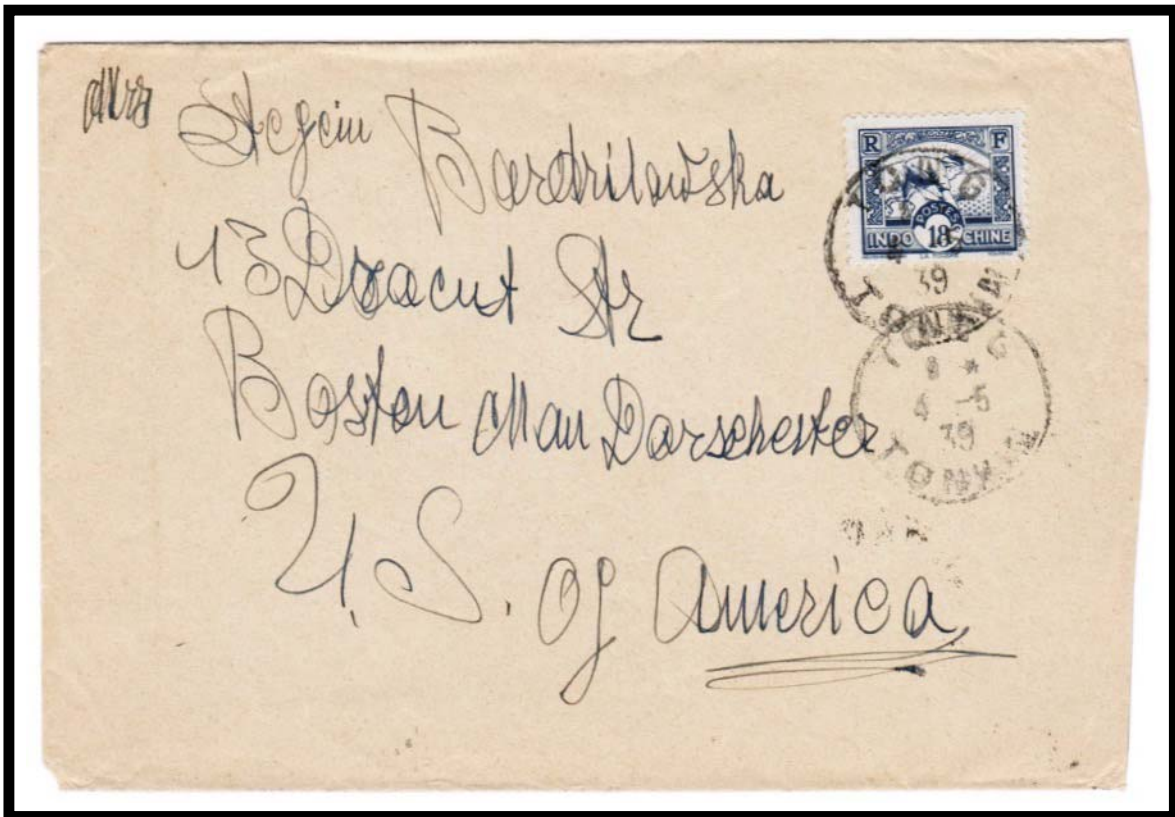 Mrs
Stegein Bardzilowska
13 Dracut Str
Boston Mass Darschester
U. S. of America
R F
POSTES
INDO 18 CHINE
TONG
39
TONKIN
TONG
8 *
4 -5
39
TONKIN